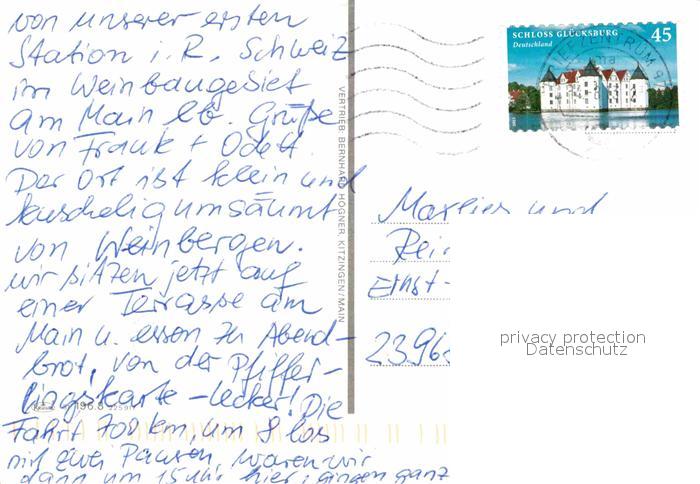 von unserer ersten
Station i. R. Schweiz
im Weinbaugebiet
am Main lb. Grüße
von Frank + Odett.
Der Ort ist klein und
kuschelig umsäumt
von Weinbergen.
wir sitzen jetzt auf
einer Terrasse am
Main u. essen zu Abend-
brot, von der Pfiffer-
lingskarte - lecker! Die
Fahrt 700 km, um 8 los
mit zwei Pausen, waren wir
dann um 15 Uhr hier, gingen ganz
VERTRIEB: BERNHARD HÖGNER, KITZINGEN/MAIN
SCHLOSS GLÜCKSBURG 45
Deutschland
Marlies und
Rei
Ernst-
2396
privacy protection
Datenschutz